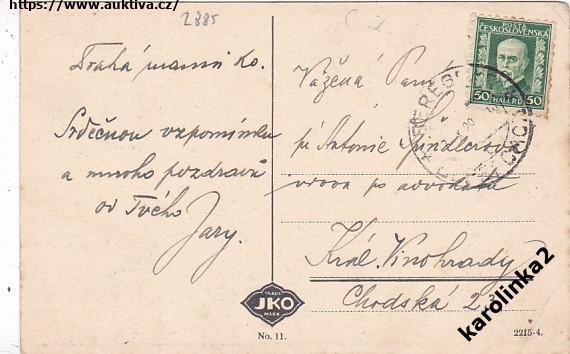 https://www.auktiva.cz/
2885
Drahá maminko.
Srdečnou vzpomínku
a mnoho pozdravů
od Tvého
Jary.
TRADE
JKO
MARK
No. 11.
POŠTA
ČESKOSLOVENSKÁ
50 HALÉŘŮ 50
Vážená Paní
pí Antonie
vdova po advokátu
Král. Vinohrady
Chodská
2215-4.
karolinka2